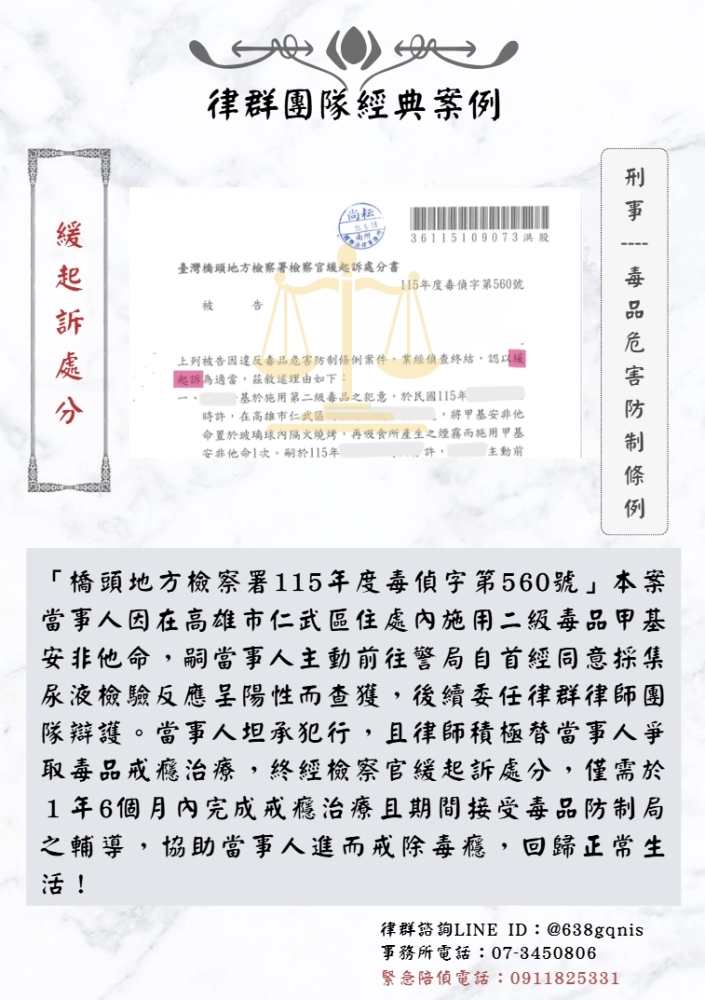 律群團隊經典案例
緩起訴處分
刑事----毒品危害防制條例
尚耘
36115109073洪股
臺灣橋頭地方檢察署檢察官緩起訴處分書
115年度毒偵字第560號
被 告
上列被告因違反毒品危害防制條例案件,業經偵查終結,認以緩
起訴為適當,茲敘述理由如下:
一、 基於施用第二級毒品之犯意,於民國115年
時許,在高雄市仁武區 ,將甲基安非他
命置於玻璃球內隔火燒烤,再吸食所產生之煙霧而施用甲基
安非他命1次。嗣於115年 許, 主動前
「橋頭地方檢察署115年度毒偵字第560號」本案
當事人因在高雄市仁武區住處內施用二級毒品甲基
安非他命,嗣當事人主動前往警局自首經同意採集
尿液檢驗反應呈陽性而查獲,後續委任律群律師團
隊辯護。當事人坦承犯行,且律師積極替當事人爭
取毒品戒癮治療,終經檢察官緩起訴處分,僅需於
1年6個月內完成戒癮治療且期間接受毒品防制局
之輔導,協助當事人進而戒除毒癮,回歸正常生
活!
律群諮詢LINE ID:@638gqnis
事務所電話:07-3450806
緊急陪偵電話:0911825331